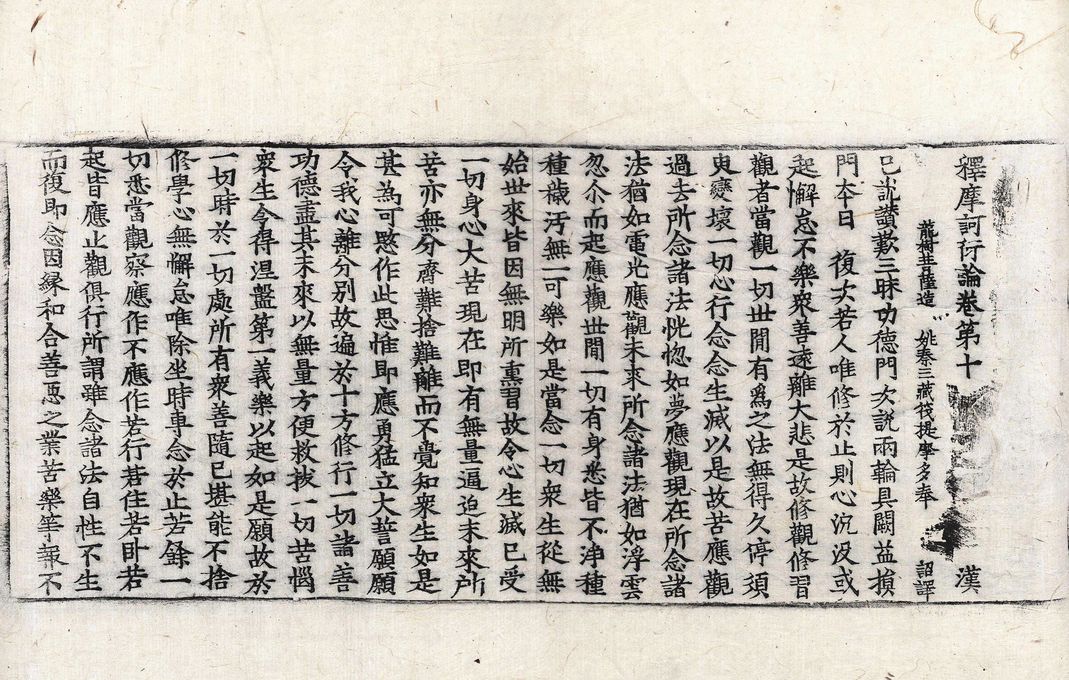 釋摩訶衍論卷第十 漢
龍樹菩薩造 姚秦三藏筏提摩多奉 詔譯
已說讚歎三昧功德門次說兩輪具闕益損
門本曰 復次若人唯修於止則心沉没或
起懈怠不樂衆善遠離大悲是故修觀修習
觀者當觀一切世閒有爲之法無得久停須
臾變壞一切心行念念生滅以是故苦應觀
過去所念諸法恍惚如夢應觀現在所念諸
法猶如電光應觀未來所念諸法猶如浮雲
忽尒而起應觀世閒一切有身悉皆不淨種
種穢汙無一可樂如是當念一切衆生從無
始世來皆因無明所熏習故令心生滅已受
一切身心大苦現在即有無量逼迫未來所
苦亦無分齊難捨難離而不覺知衆生如是
甚為可愍作此思惟即應勇猛立大誓願願
令我心離分別故遍於十方修行一切諸善
功德盡其未來以無量方便救拔一切苦惱
衆生令得涅盤第一義樂以起如是願故於
一切時於一切處所有衆善隨已堪能不捨
修學心無懈怠唯除坐時專念於止若餘一
切悉當觀察應作不應作若行若住若卧若
起皆應止觀俱行所謂雖念諸法自性不生
而復即念因縁和合善惡之業苦樂等報不